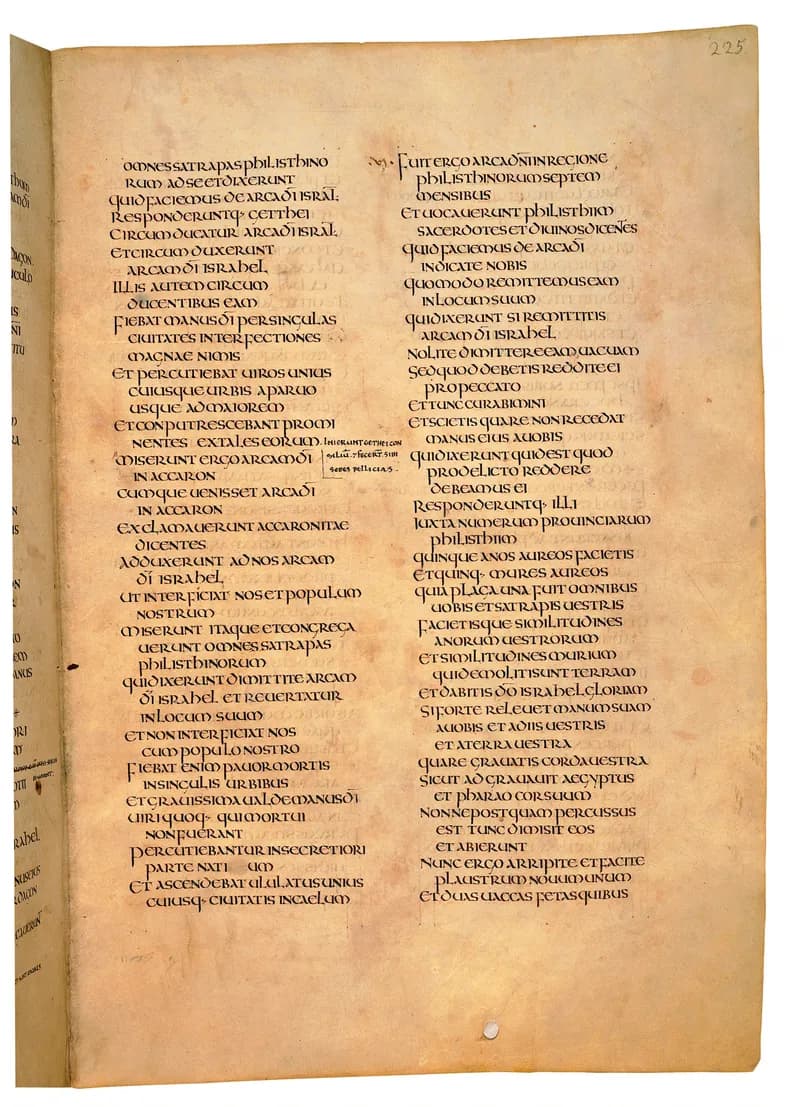 225
OMNES SATRAPAS PHILISTHINO
RUM AD SE ET DIXERUNT
QUID FACIEMUS DE ARCA DI ISRAL
RESPONDERUNTQ· GETTHEI
CIRCUM DUCATUR ARCA DI ISRAL
ET CIRCUM DUXERUNT
ARCAM DI ISRAHEL
ILLIS AUTEM CIRCUM
DUCENTIBUS EAM
FIEBAT MANUS DI PER SINGULAS
CIUITATES INTERFECTIONES
MAGNAE NIMIS
ET PERCUTIEBAT UIROS UNIUS
CUIUSQUE URBIS A PARUO
USQUE AD MAIOREM
ET CONPUTRESCEBANT PROMI
NENTES EXTALES EORUM
INIERUNT GETHEI CON
SILIU ·7 FECERT SIBI
SEDES PELLICIAS·
MISERUNT ERGO ARCAM DI
IN ACCARON
CUMQUE UENISSET ARCA DI
IN ACCARON
EXCLAMAUERUNT ACCARONITAE
DICENTES
ADDUXERUNT AD NOS ARCAM
DI ISRAHEL
UT INTERFICIAT NOS ET POPULUM
NOSTRUM
MISERUNT ITAQUE ET CONGREGA
UERUNT OMNES SATRAPAS
PHILISTHINORUM
QUI DIXERUNT DIMITTITE ARCAM
DI ISRAHEL ET REUERTATUR
IN LOCUM SUUM
ET NON INTERFICIAT NOS
CUM POPULO NOSTRO
FIEBAT ENIM PAUOR MORTIS
IN SINGULIS URBIBUS
ET GRAUISSIMA UALDE MANUS DI
UIRI QUOQ· QUI MORTUI
NON FUERANT
PERCUTIEBANTUR IN SECRETIORI
PARTE NATI UM
ET ASCENDEBAT ULULATUS UNIUS
CUIUSQ· CIUITATIS IN CAELUM
FUIT ERGO ARCA DNI IN REGIONE
PHILISTHINORUM SEPTEM
MENSIBUS
ET UOCAUERUNT PHILISTHIIM
SACERDOTES ET DIUINOS DICENTES
QUID FACIEMUS DE ARCA DI
INDICATE NOBIS
QUOMODO REMITTEMUS EAM
IN LOCUM SUUM
QUI DIXERUNT SI REMITTITIS
ARCAM DI ISRAHEL
NOLITE DIMITTERE EAM UACUAM
SED QUOD DEBETIS REDDITE EI
PRO PECCATO
ET TUNC CURABIMINI
ET SCIETIS QUARE NON RECEDAT
MANUS EIUS A UOBIS
QUI DIXERUNT QUID EST QUOD
PRO DELICTO REDDERE
DEBEAMUS EI
RESPONDERUNTQ· ILLI
IUXTA NUMERUM PROUINCIARUM
PHILISTHIIM
QUINQUE ANOS AUREOS FACIETIS
ET QUINQ· MURES AUREOS
QUIA PLAGA UNA FUIT OMNIBUS
UOBIS ET SATRAPIS UESTRIS
FACIETISQUE SIMILITUDINES
ANORUM UESTRORUM
ET SIMILITUDINES MURIUM
QUI DEMOLITI SUNT TERRAM
ET DABITIS DO ISRAHEL GLORIAM
SI FORTE RELEUET MANUM SUAM
A UOBIS ET A DIIS UESTRIS
ET A TERRA UESTRA
QUARE GRAUATIS CORDA UESTRA
SICUT ADGRAUAUIT AEGYPTUS
ET PHARAO COR SUUM
NONNE POSTQUAM PERCUSSUS
EST TUNC DIMISIT EOS
ET ABIERUNT
NUNC ERGO ARRIPITE ET FACITE
PLAUSTRUM NOUUM UNUM
ET DUAS UACCAS FETAS QUIBUS